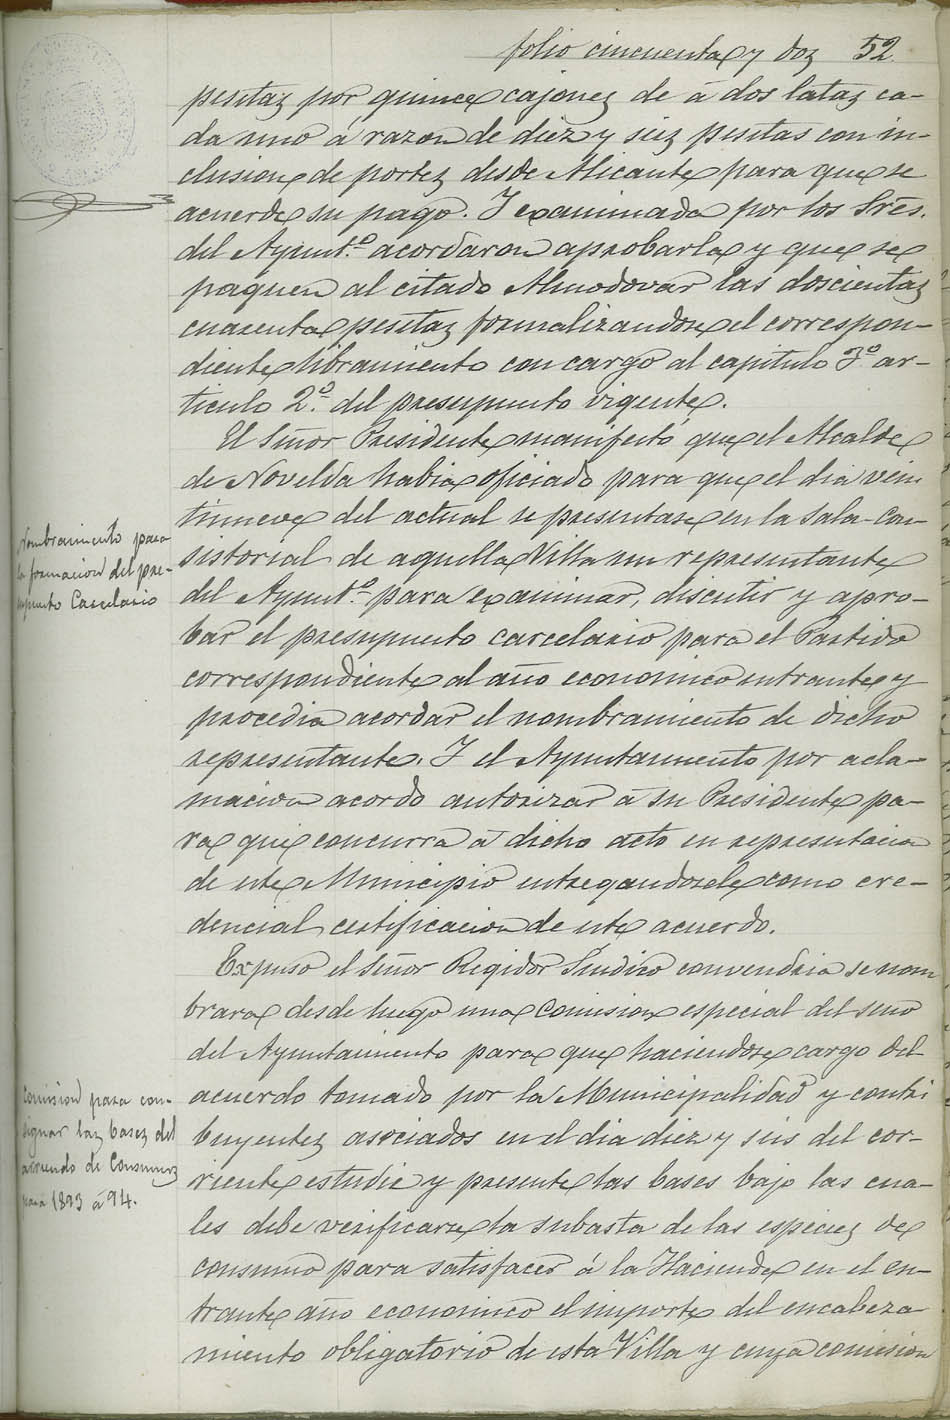 folio cincuenta y dos 52
pesetas por quince cajones de á dos latas ca-
da uno á razon de diez y seis pesetas con in-
clusion de portes desde Alicante para que se
acuerde su pago. Y examinada por los Sres.
del Ayunt.º acordaron aprobarla y que se
paguen al citado Almodovar las doscientas
cuarenta pesetas formalizandose el correspon-
diente libramiento con cargo al capitulo 3º ar-
ticulo 2.º del presupuesto vigente.
El Señor Presidente manifestó que el Alcalde
de Novelda habia oficiado para que el dia vein
tinueve del actual se presentase en la Sala-Con-
sistorial de aquella Villa un representante
del Ayunt.º para examinar, discutir y apro-
bar el presupuesto carcelario para el Partido
correspondiente al año economico entrante y
procedia acordar el nombramiento de dicho
representante. Y el Ayuntamiento por acla-
macion acordo autorizar á su Presidente pa-
ra que concurra á dicho acto en representacion
de este Municipio entregandosele como cre-
dencial certificacion de este acuerdo.
Nombramiento para
la formacion del pre-
supuesto Carcelario
Expuso el Señor Regidor Sindico convendria se nom
brara desde luego una comision especial del seno
del Ayuntamiento para que haciendose cargo del
acuerdo tomado por la Municipalidad y contri
buyentes asociados en el dia diez y seis del cor-
riente estudie y presente las bases bajo las cua-
les debe verificarse la subasta de las especies de
consumo para satisfacer á la Hacienda en el en-
trante año economico el importe del encabeza-
miento obligatorio de esta Villa y cuya comision
Comision para con-
signar las bases del
arriendo de Consumos
para 1893 á 94.